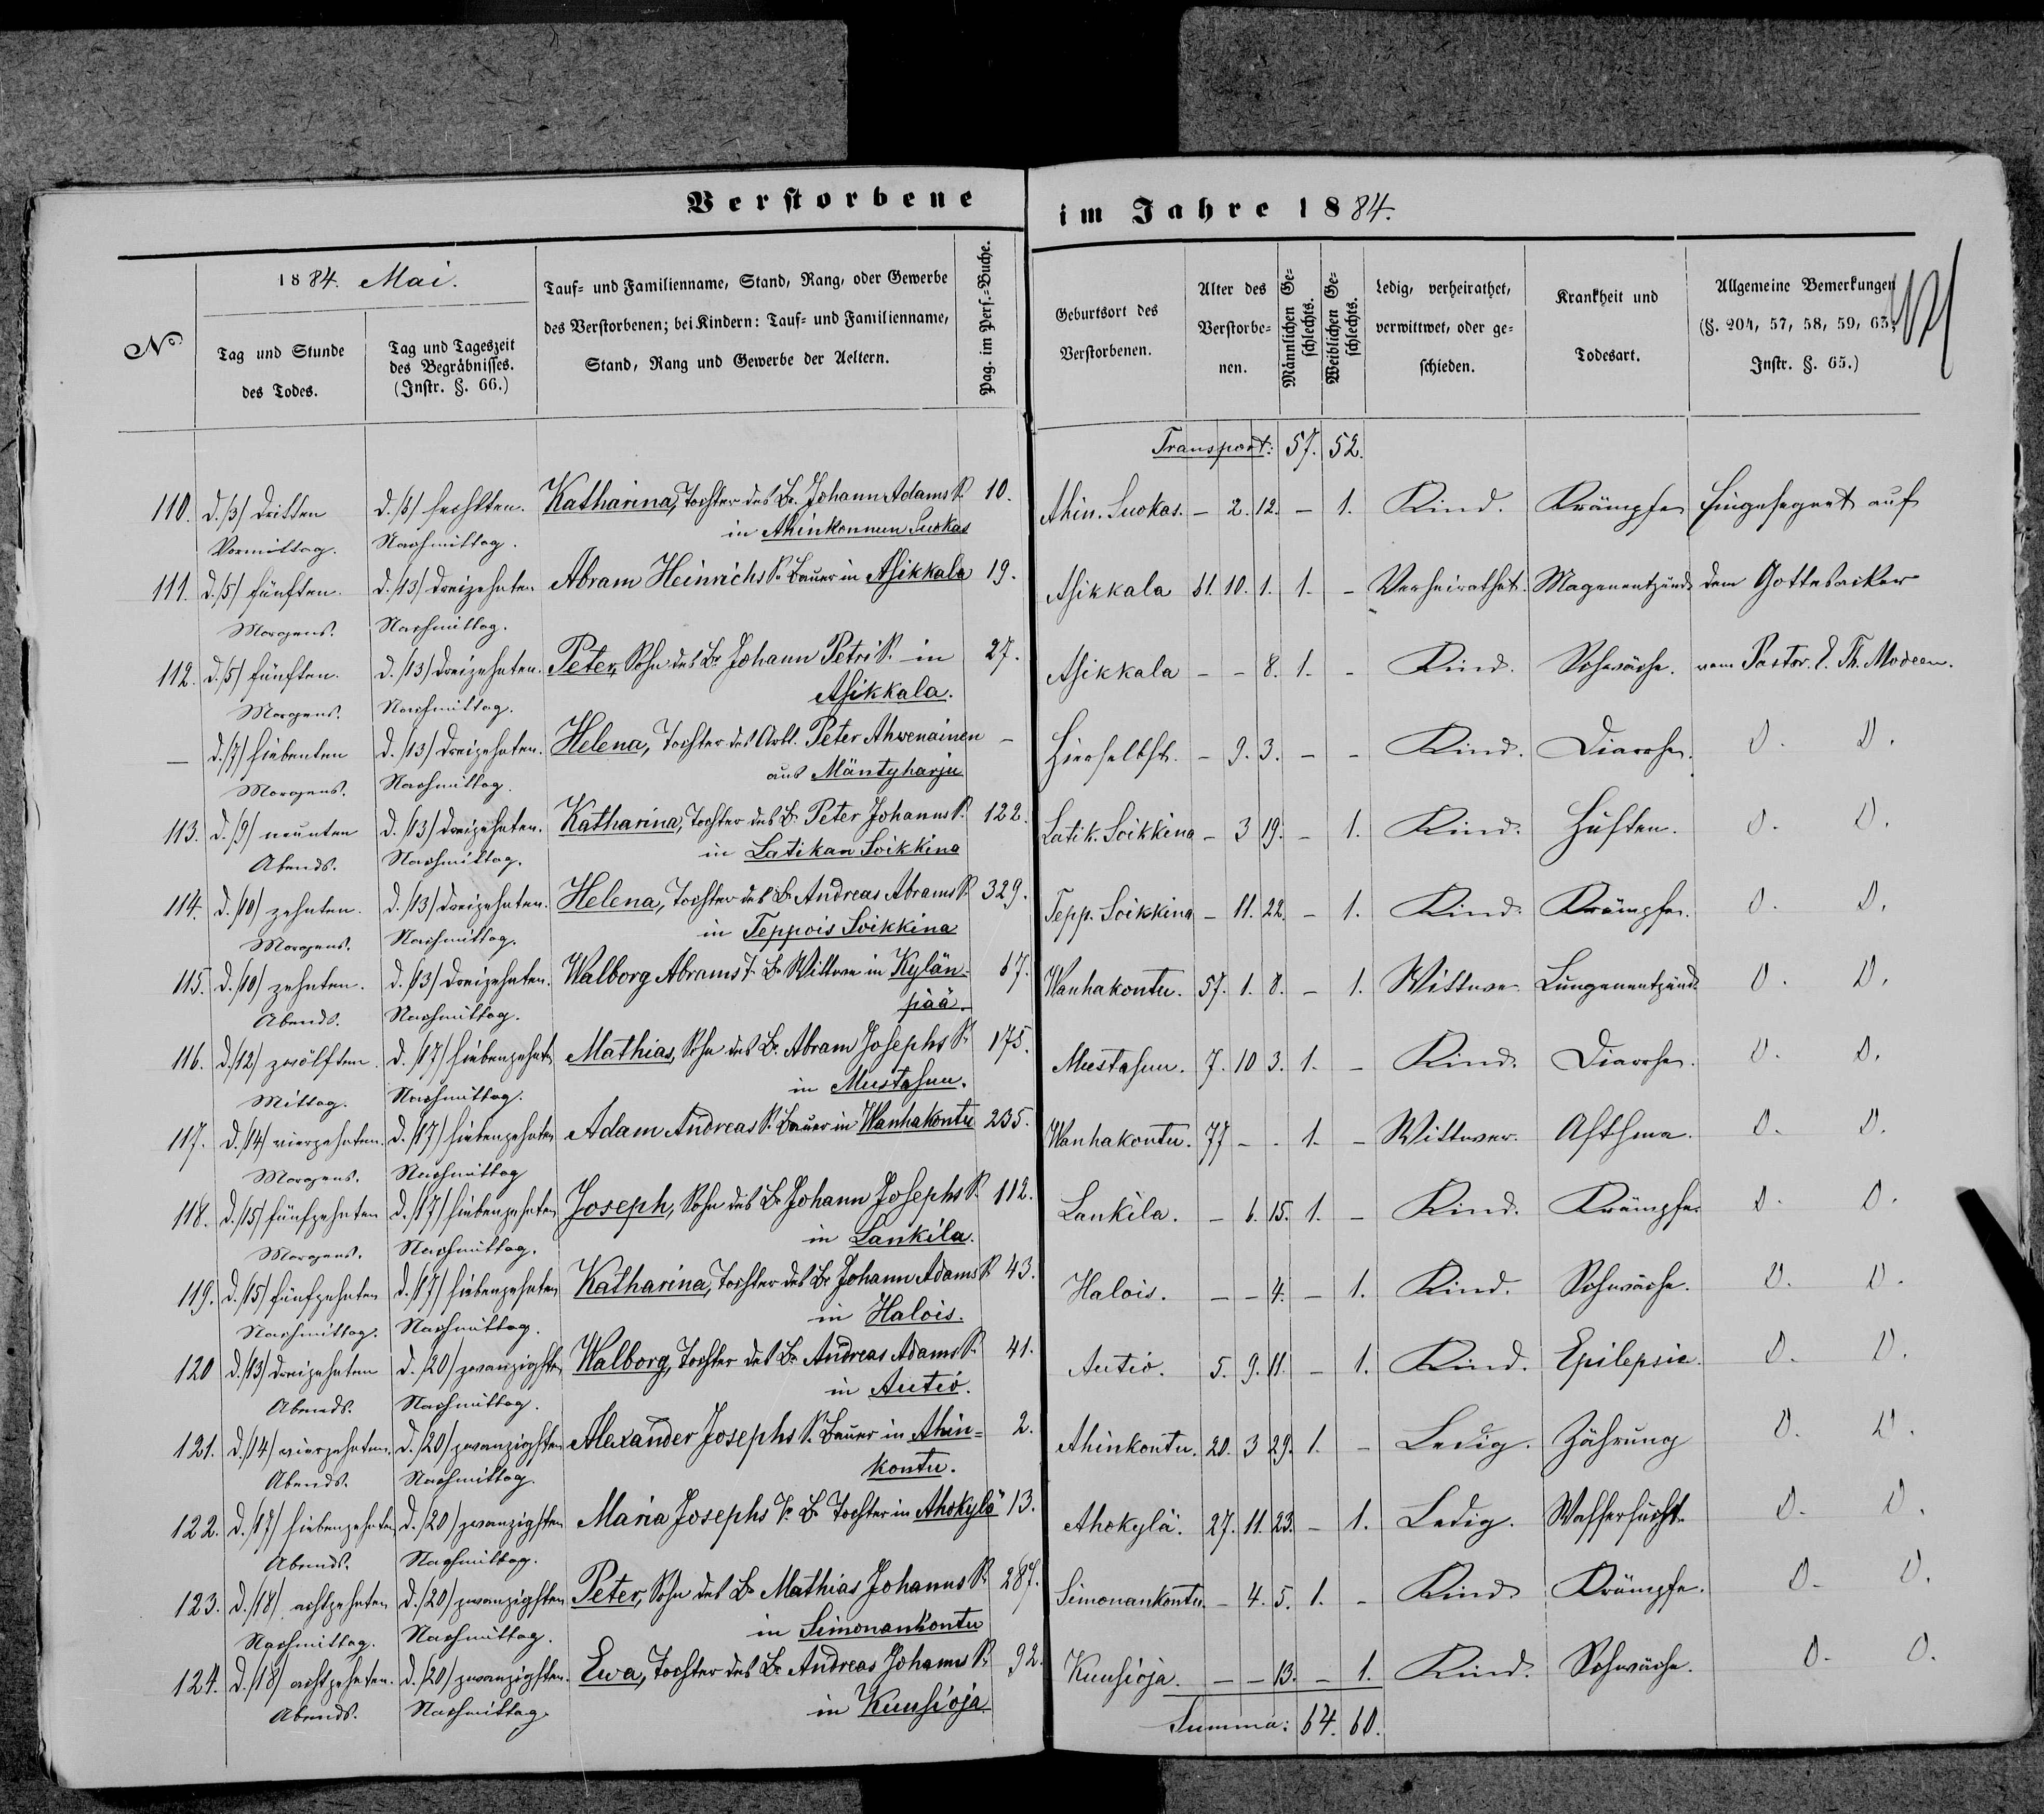 Verstorbene im Jahre 1884.
No
1884. Mai.
Tag und Stunde des Todes.
Tag und Tageszeit des Begräbnisses. (Instr. §. 66.)
Tauf- und Familienname, Stand, Rang, oder Gewerbe
des Verstorbenen; bei Kindern: Tauf- und Familienname,
Stand, Rang und Gewerbe der Aeltern.
Pag. im Pers.-Buche.
Geburtsort des Verstorbenen.
Alter des Verstorbenen.
Männlichen Geschlechts.
Weiblichen Geschlechts.
Ledig, verheirathet, verwittwet, oder geschieden.
Krankheit und Todesart.
Allgemeine Bemerkungen
(§. 204, 57, 58, 59, 63;
Instr. §. 65.)
Transport: 57. 52.
110. d. /3/ dritten d. /6/ sechsten. Katharina, Tochter des Br. Johann Adams S. 10. Ahin. Suokas. - 2. 12. - 1. Kind. Krämpfe Eingesegnet auf
Vormittag. Nachmittag. in Ahinkonnun Suokas
111. d. /5/ fünften. d. /13/ dreizehnten Abram Heinrichs S. Bauer in Asikkala 19. Asikkala 61. 10. 1. 1. - Verheirathet. Magenentzünd. dem Gottesacker
Morgens. Nachmittag.
112. d. /5/ fünften. d. /13/ dreizehnten. Peter, Sohn des Br. Johann Petri S. in 27. Asikkala - - 8. 1. - Kind. Schwäche. vom Pastor. E. Th. Modeen.
Morgens. Nachmittag. Asikkala.
- d. /7/ siebenten d. /13/ dreizehnten. Helena, Tochter des Arb. Peter Ahwenainen - Hierselbst. - 9. 3. - - Kind. Diarrhe. D. D.
Morgens. Nachmittag. aus Mäntyharju
113. d. /9/ neunten d. /13/ dreizehnten. Katharina, Tochter des Br. Peter Johanns S. 122. Latik. Soikkina - 3 19. - 1. Kind. Husten. D. D.
Abends. Nachmittag. in Latikan Soikkina
114. d. /10/ zehnten. d. /13/ dreizehnten. Helena, Tochter des Br. Andreas Abrams S. 329. Tepp. Soikkina - 11. 22. - 1. Kind. Krämpfe. D. D.
Morgens. Nachmittag. in Teppois Soikkina
115. d. /10/ zehnten. d. /13/ dreizehnten. Walborg Abrams T. Br. Wittwe in Kylän- 67. Wanhakontu. 57. 1. 8. - 1. Wittwe. Lungenentzünd. D. D.
Abends. Nachmittag. pää.
116. d. /12/ zwölften. d. /17/ siebenzehnt. Mathias, Sohn des Br. Abram Josephs S. 175. Mustasuu. 7. 10 3. 1. - Kind. Diarrhe. D. D.
Mittag. Nachmittag. in Mustasuu.
117. d. /14/ vierzehnten. d. /17/ siebenzehnten Adam Andreas S. Bauer in Wanhakontu 235. Wanhakontu. 77 - - 1. - Wittwer. Asthma. D. D.
Morgens. Nachmittag
118. d. /15/ fünfzehnten d. /17/ siebenzehnten Joseph, Sohn des Br. Johann Josephs S. 112. Lankila. - 6. 15. 1. - Kind. Krämpfe. D. D.
Morgens. Nachmittag. in Lankila.
119. d. /15/ fünfzehnten d. /17/ siebenzehnten Katharina, Tochter des Br. Johann Adams S. 43. Halois. - - 4. - 1. Kind. Schwäche. D. D.
Nachmittag. Nachmittag. in Halois.
120 d. /13/ dreizehnten d. /20/ zwanzigsten Walborg, Tochter des Br. Andreas Adams S. 41. Autio. 5. 9. 11. - 1. Kind. Epilepsie. D. D.
Abends. Nachmittag. in Autio.
121. d. /14/ vierzehnten. d. /20/ zwanzigsten Alexander Josephs S. Bauer in Ahin- 2. Ahinkontu. 20. 3 29. 1. - Ledig. Zährung D. D.
Abends. Nachmittag. kontu.
122. d. /17/ siebenzehnten d. /20/ zwanzigsten Maria Josephs T. Br. Tochter in Ahokylä 13. Ahokylä. 27. 11. 23. - 1. Ledig. Wassersucht. D. D.
Abends. Nachmittag.
123. d. /18/ achtzehnten d. /20/ zwanzigsten Peter, Sohn des Br. Mathias Johanns S. 287. Simonankontu. - 4. 5. 1. - Kind Krämpfe. D. D.
Nachmittag. Nachmittag. in Simonankontu
124. d. /18/ achtzehnten. d. /20/ zwanzigsten. Ewa, Tochter des Br. Andreas Johanns S. 92. Kuusioja. - - 13. - 1. Kind. Schwäche. D. D.
Abends. Nachmittag. in Kuusioja
Summa: 64. 60.